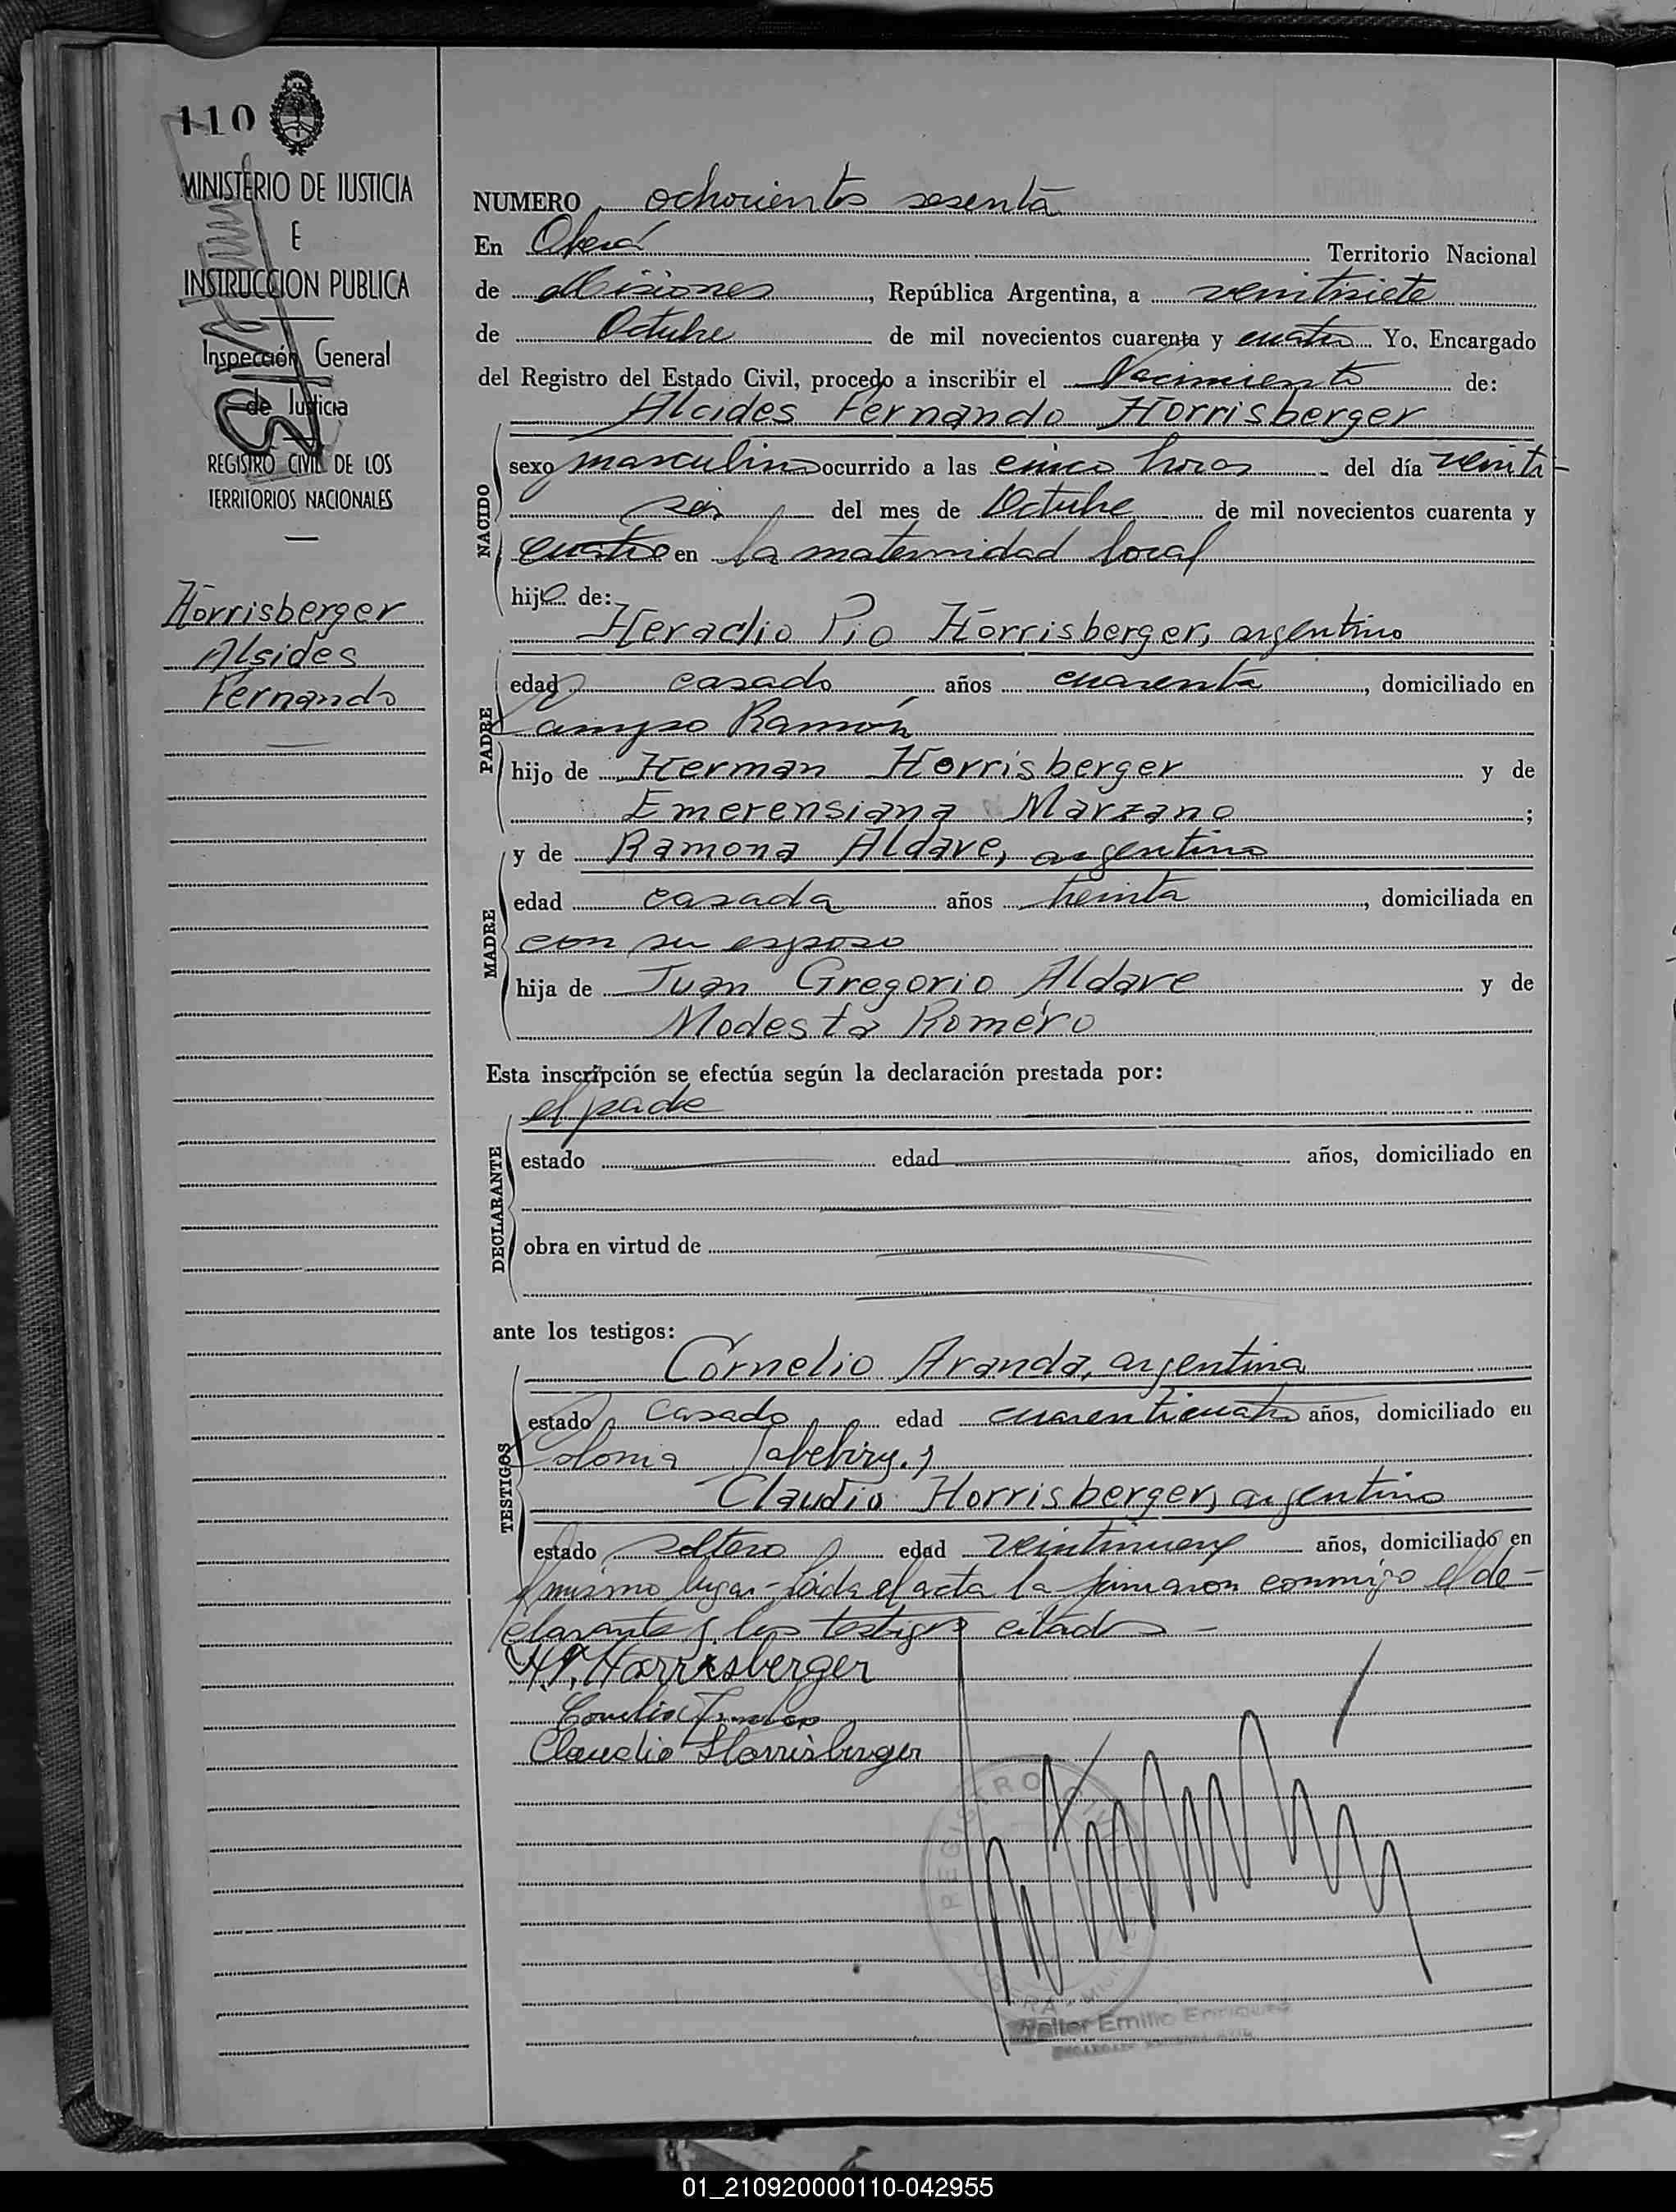 110
MINISTERIO DE JUSTICIA
E
INSTRUCCION PUBLICA
Inspección General
de Justicia
REGISTRO CIVIL DE LOS
TERRITORIOS NACIONALES
Horrisberger
Alsides
Fernando
NUMERO ochocientos sesenta
En Oberá Territorio Nacional
de Misiones, República Argentina, a veintisiete
de Octubre de mil novecientos cuarenta y cuatro Yo, Encargado
del Registro del Estado Civil, procedo a inscribir el Nacimiento de:
Alcides Fernando Horrisberger
NACIDO
sexo masculino ocurrido a las cinco horas del día veinti-
seis del mes de Octubre de mil novecientos cuarenta y
cuatro en la maternidad local
hijo de:
Heraclio Pio Horrisberger, argentino
PADRE
edad casado años cuarenta, domiciliado en
Campo Ramón
hijo de Herman Horrisberger y de
Emerensiana Marzano;
MADRE
y de Ramona Aldave, argentina
edad casada años treinta, domiciliada en
con su esposo
hija de Juan Gregorio Aldave y de
Modesta Romero
Esta inscripción se efectúa según la declaración prestada por:
el padre
DECLARANTE
estado edad años, domiciliado en
obra en virtud de
ante los testigos:
Cornelio Aranda, argentina
TESTIGOS
estado casado edad cuarenticuatro años, domiciliado en
Colonia Yabebiry. y
Claudio Horrisberger, argentino
estado soltero edad veintinueve años, domiciliado en
el mismo lugar - Leida el acta la firmaron conmigo el de-
clarante y los testigos citados -
H.P. Horrisberger
Claudio Horrisberger
REGISTRO
Walter Emilio Enriquez
01_210920000110-042955